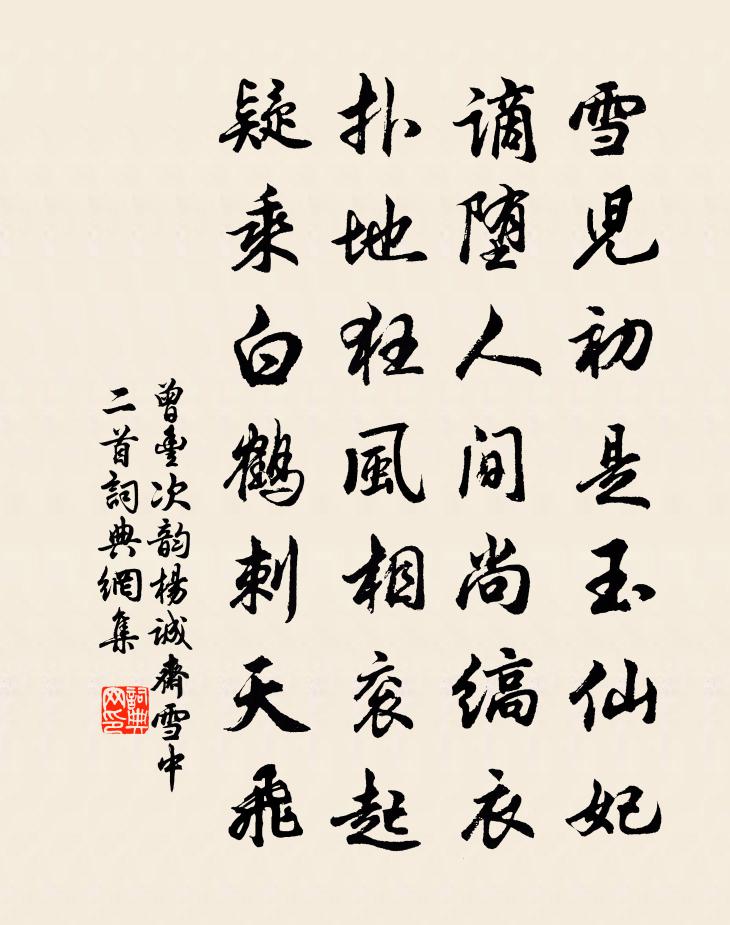 雪児初是玉仙妃
謫堕人间尚缟衣
扑地狂風相衮起
疑乘白鶴刺天飛
曾豊次韵楊誠齋雪中
二首詞典網集
詞典
网印